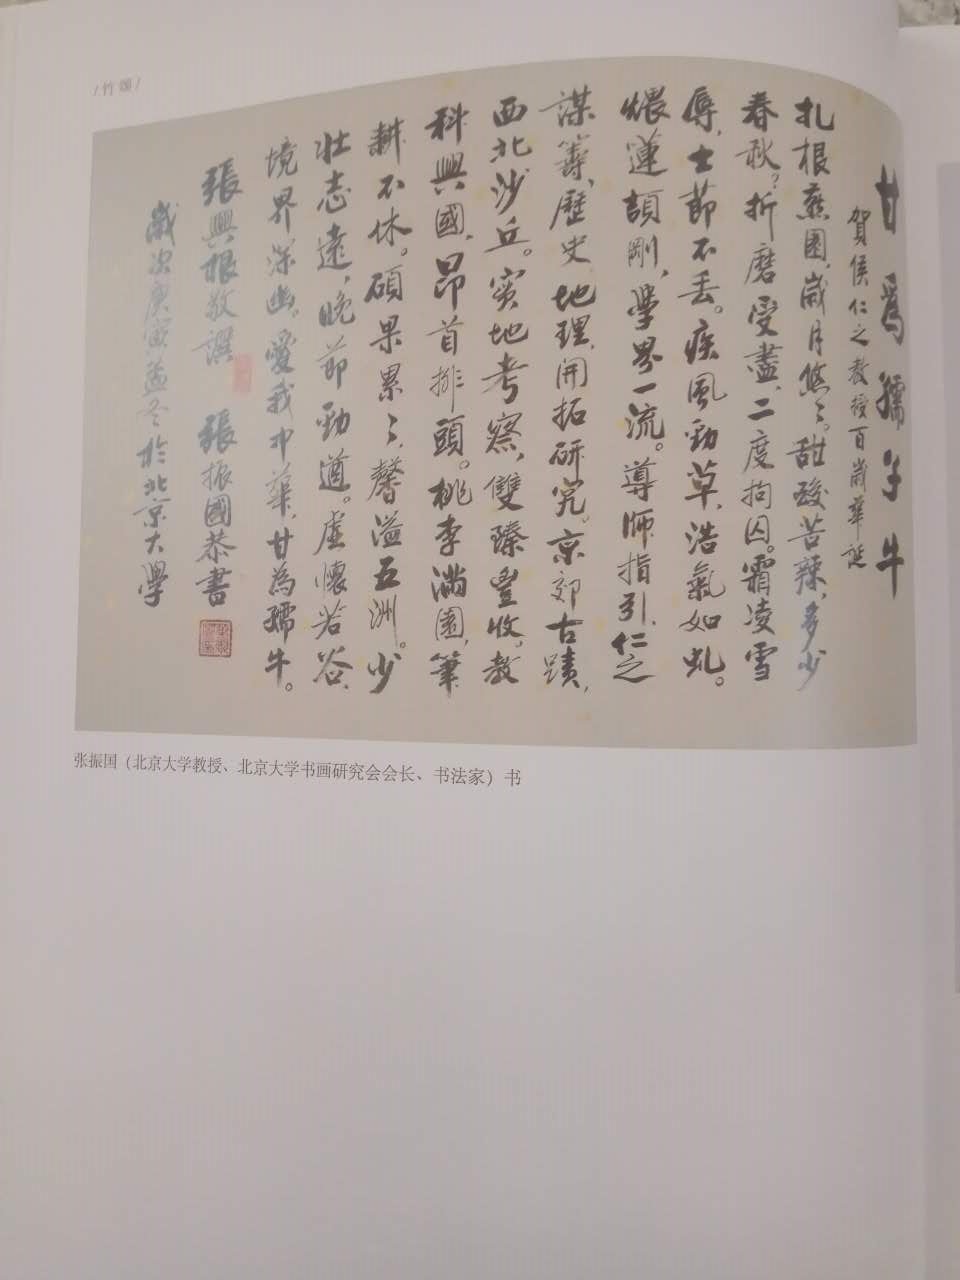 /竹 颂/
甘爲孺子牛
賀侯仁之教授百歲華誕
扎根燕園，歲月悠々。甜酸苦辣，多少
春秋？折磨受盡，二度拘囚。霜凌雪
辱，士節不丟。疾風勁草，浩氣如虬。
煨蓮頡剛，學界一流。導師指引，仁之
謀籌，歷史地理，開拓研究。京郊古蹟，
西北沙丘。實地考察，雙臻豐收。教
科興國，昂首排頭。桃李滿園，筆
耕不休。碩果累々，馨溢五洲。少
壯志遠，晚節勁遒。虛懷若谷，
境界深幽。愛我中華，甘為孺牛。
張興根敬譔 張振國恭書
歲次庚寅孟冬於北京大學
张振国（北京大学教授、北京大学书画研究会会长、书法家）书